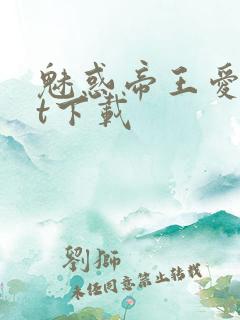 魅惑帝王愛
t下載
劉獅
未經同意禁止轉載